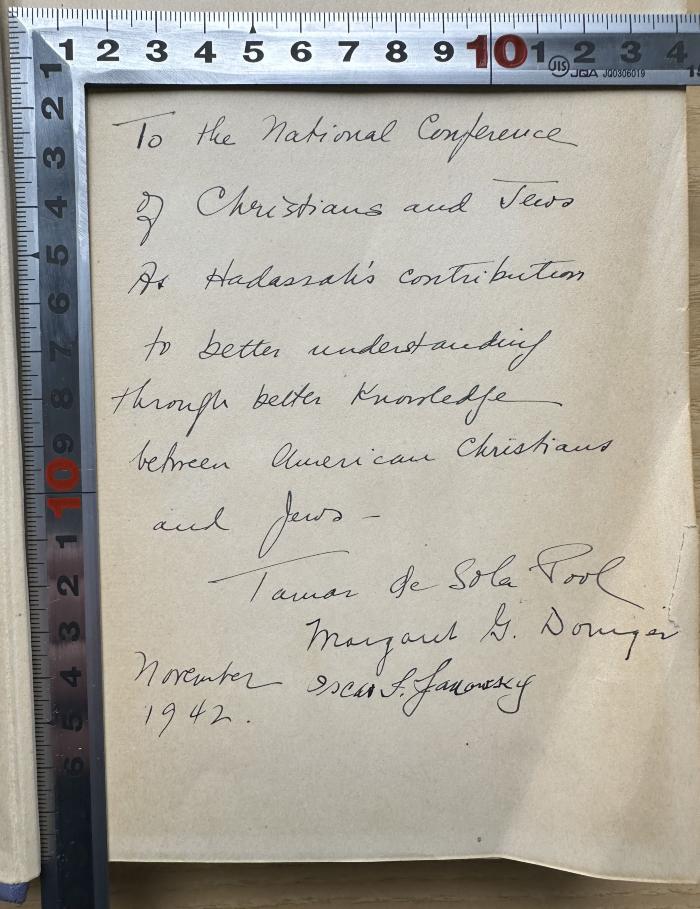 1 2 3 4 5 6 7 8 9 10 1 2 3 4 15
JIS JQA JQ0306019
1
2
3
4
5
6
7
8
9
10
1
2
3
4
5
6
To the National Conference
of Christians and Jews
As Hadassah's contribution
to better understanding
through better Knowledge
between American Christians
and Jews –
Tamar de Sola Pool
Margaret G. Doniger
November Oscar I. Janowsky
1942.